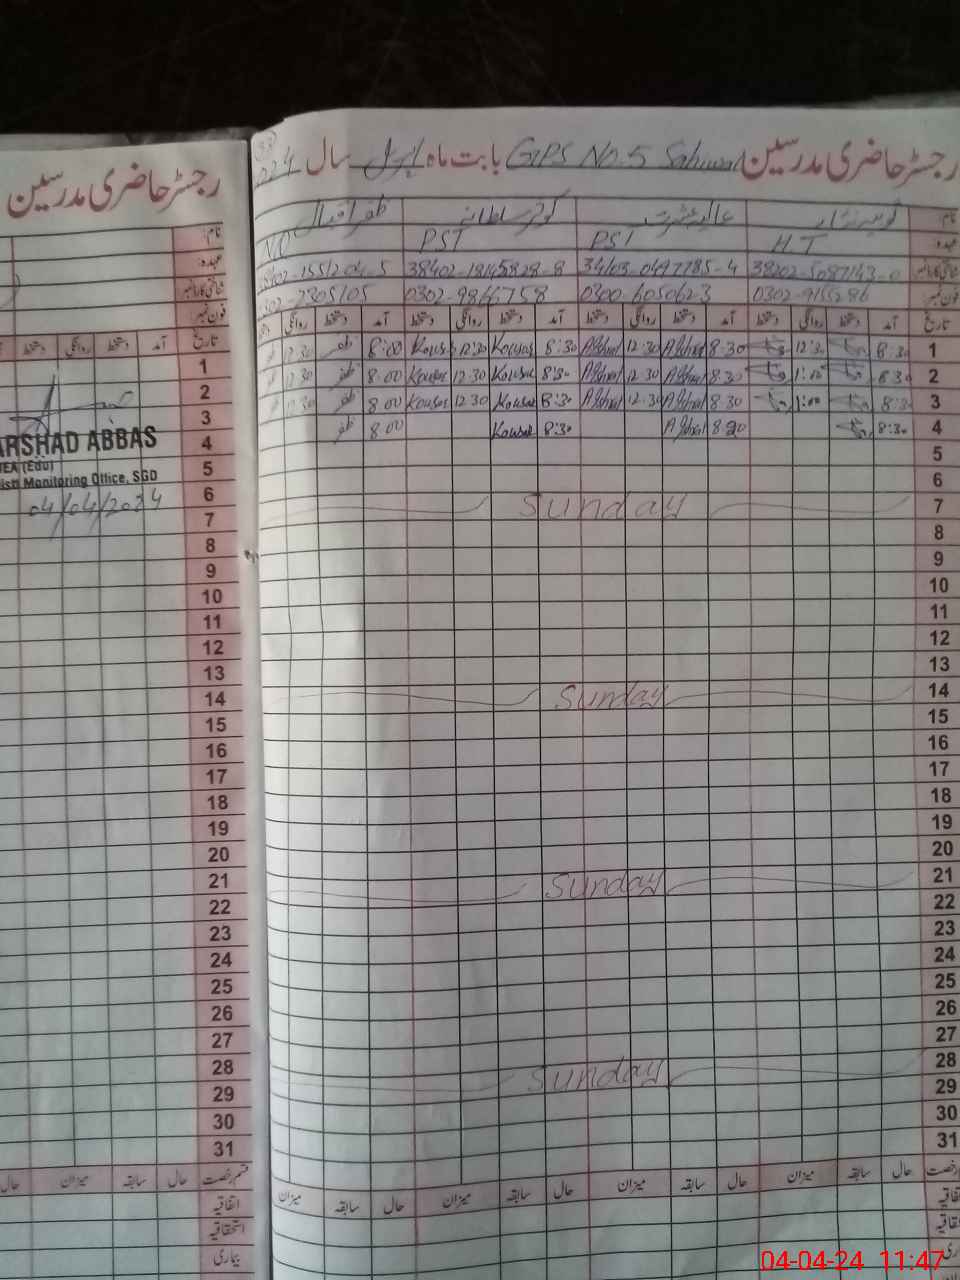 رجسٹر حاضری مدرسین
نام:
عہدہ:
شناختی کارڈ نمبر
فون نمبر:
تاریخ آمد دستخط روانگی دستخط
1
2
3
ARSHAD ABBAS
4
5
Monitoring Office, SGD
6
04/04/2024
7
8
9
10
11
12
13
14
15
16
17
18
19
20
21
22
23
24
25
26
27
28
29
30
31
قسم رخصت حال سابقہ میزان حال
اتفاقیہ
استحقاقیہ
بیماری
33
رجسٹر حاضری مدرسین GPS No.5 Sahiwal بابت ماہ اپریل سال 024
نام: کوثر سلطانہ ظفر اقبال
عہدہ: H.T PST PST NQ
شناختی کارڈ نمبر 38202-5087143-0 34103-0497785-4 38402-1845828-8 38402-1551204-5
فون نمبر: 0302-9155286 0300-6050623 0302-9866758 0302-2305105
تاریخ آمد دستخط روانگی دستخط آمد دستخط روانگی دستخط آمد دستخط روانگی دستخط آمد دستخط روانگی
1 8:30 12:30 8-30 Ashraf 12:30 Ashraf 8:30 Kousar 12:30 Kousar 8:00 ظفر 12:30
2 8:30 1:00 8:30 Ashraf 12:30 Ashraf 8:30 Kousar 12:30 Kousar 8:00 ظفر 12:30
3 8:30 1:00 8:30 Ashraf 12:30 Ashraf 8:30 Kousar 12:30 Kousar 8:00 ظفر 12:30
4 8:30 8:30 Ashraf 8:30 Kousar 8:00 ظفر
5
6
7 Sunday
8
9
10
11
12
13
14 Sunday
15
16
17
18
19
20
21 Sunday
22
23
24
25
26
27
28 Sunday
29
30
31
رخصت حال سابقہ میزان حال سابقہ میزان حال سابقہ میزان حال سابقہ میزان
04-04-24 11:47